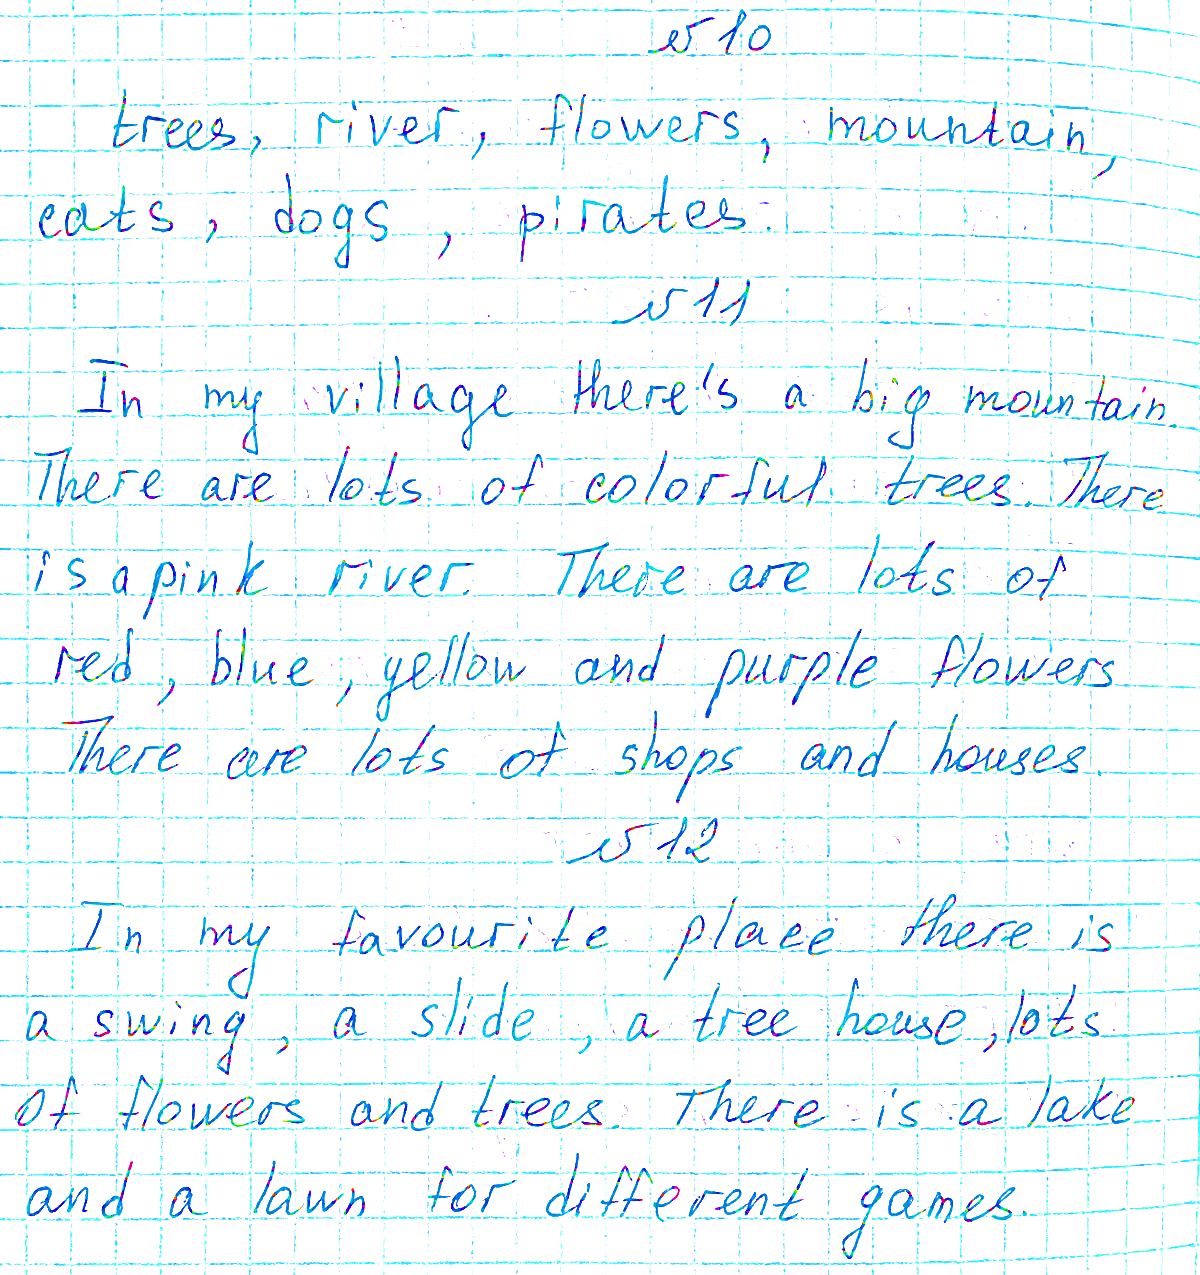 №10
trees, river, flowers, mountain,
cats, dogs, pirates.
№11
In my village there's a big mountain.
There are lots of colorful trees. There
is a pink river. There are lots of
red, blue, yellow and purple flowers
There are lots of shops and houses.
№12
In my favourite place there is
a swing, a slide, a tree house, lots
of flowers and trees. There is a lake
and a lawn for different games.